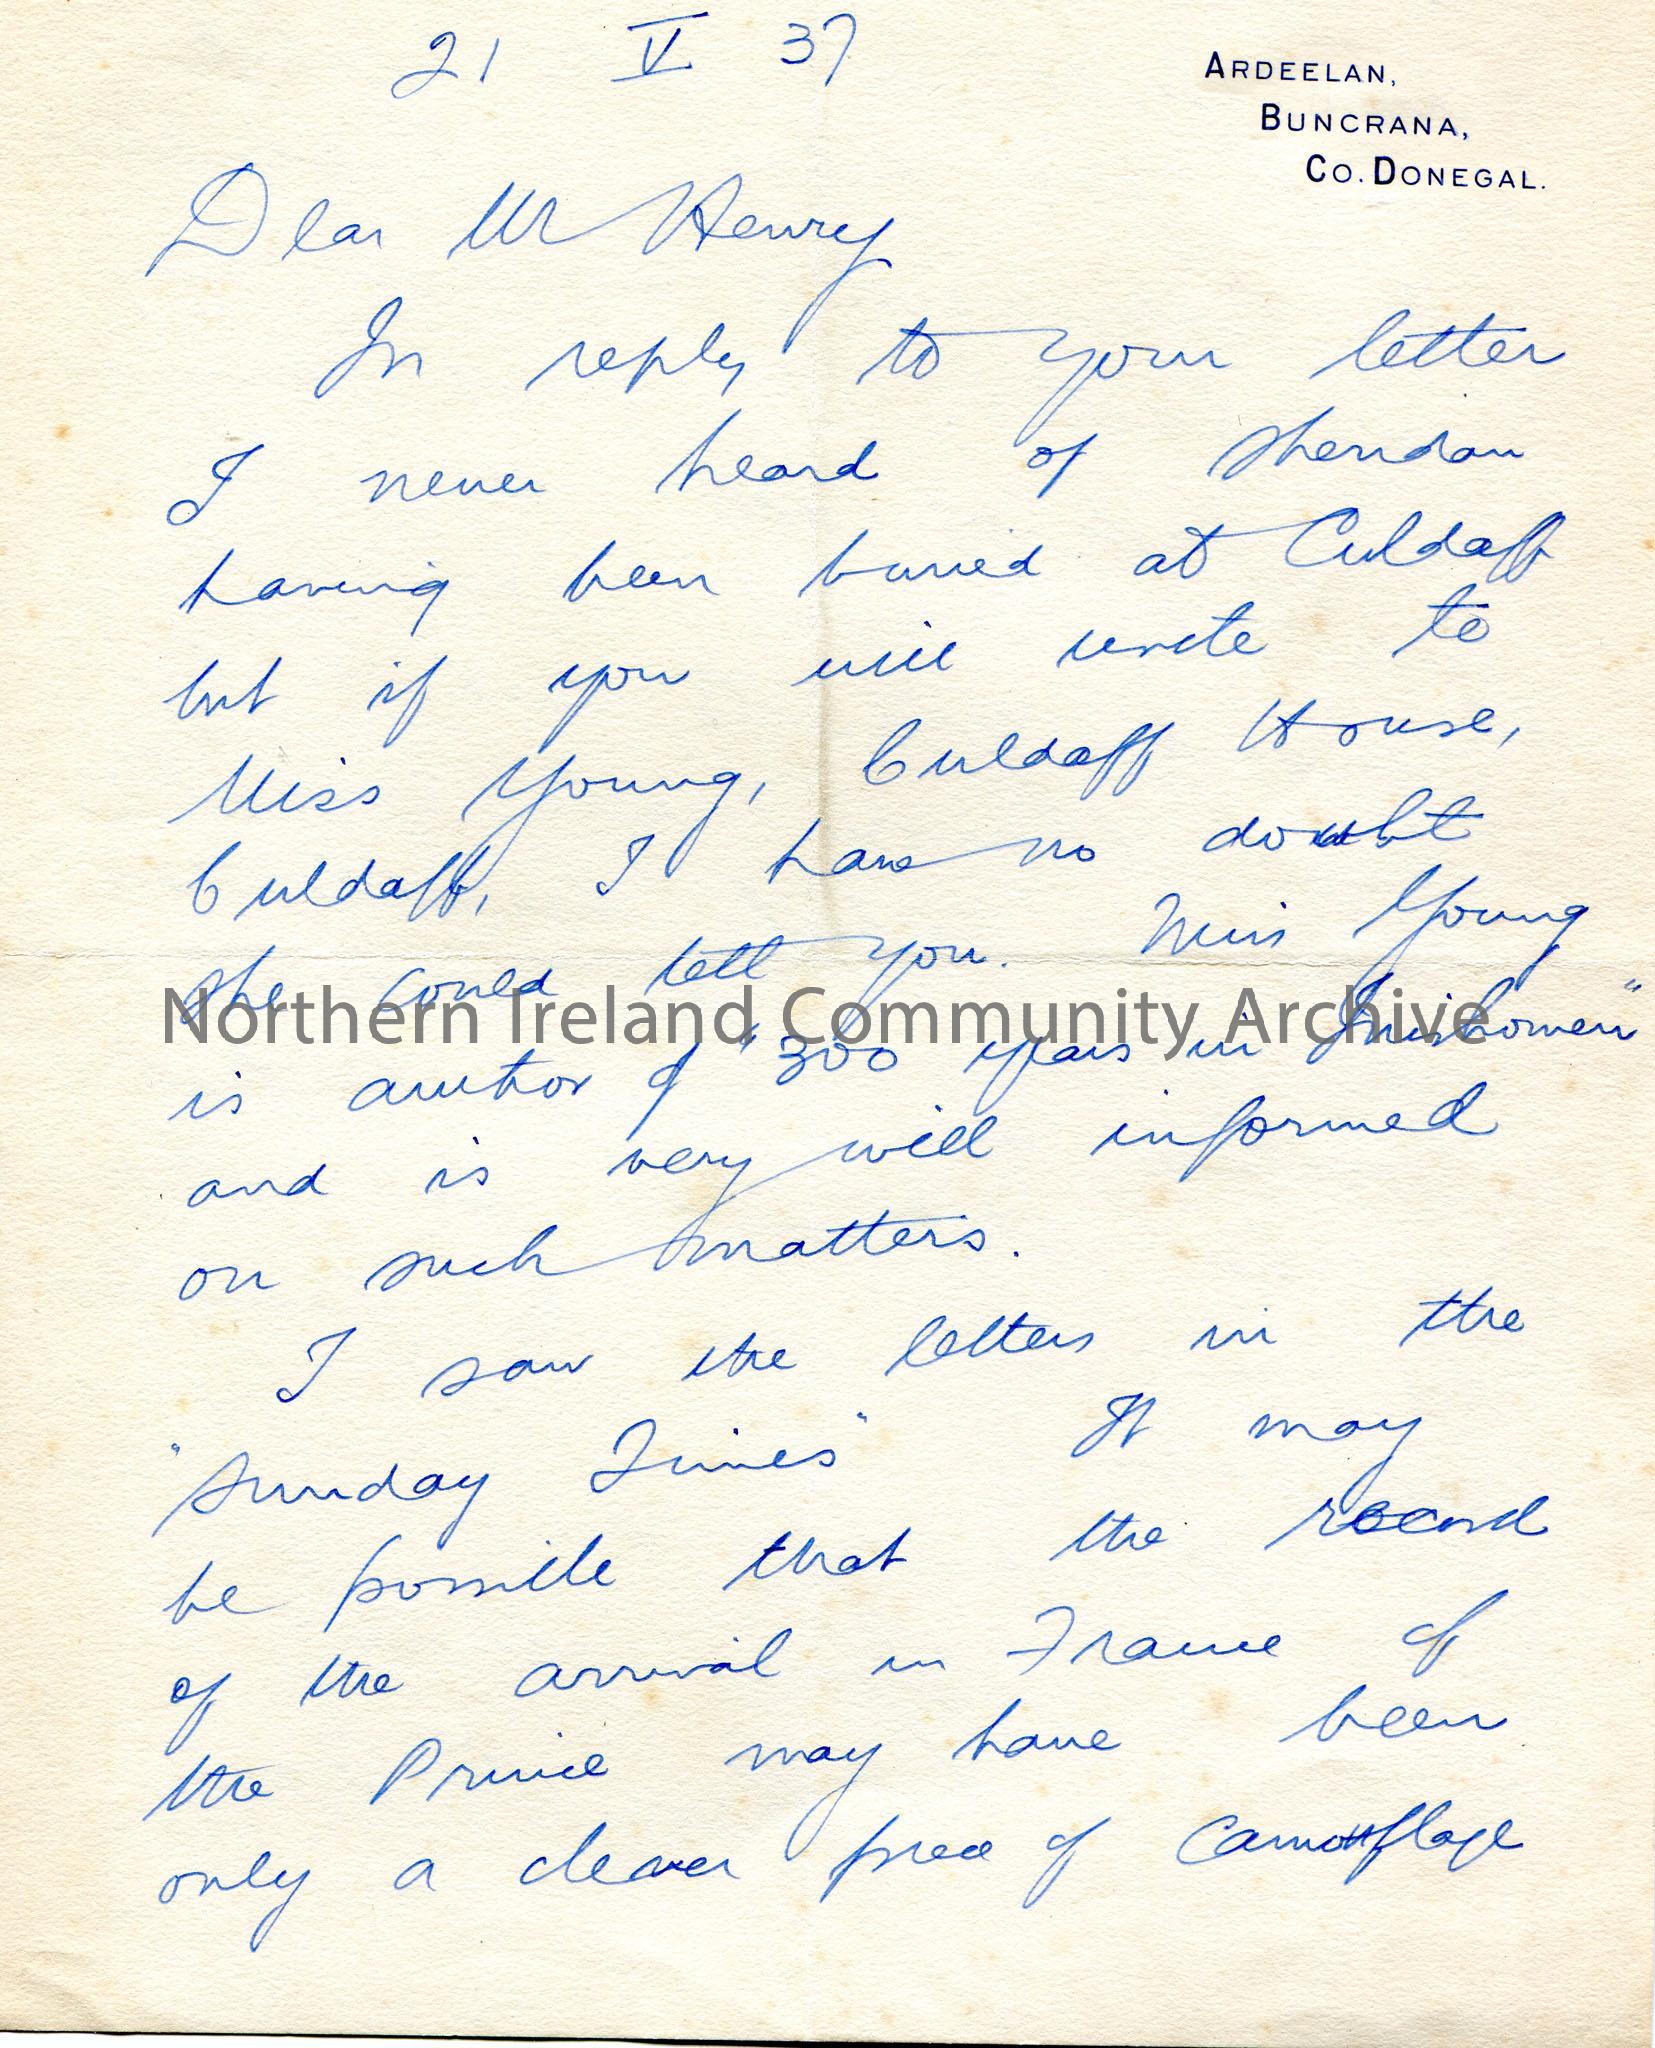 21 V 37
ARDEELAN,
BUNCRANA,
CO. DONEGAL.
Dear Mr Henry
In reply to your letter
I never heard of Sheridan
having been buried at Culdaff
but if you will write to
Miss Young, Culdaff House,
Culdaff, I have no doubt
she could tell you. Miss Young
is author of "300 years in Inishowen"
and is very well informed
on such matters.
I saw the letters in the
"Sunday Times" It may
be possible that the record
of the arrival in France of
the Prince may have been
only a clever piece of Camouflage
Northern Ireland Community Archive